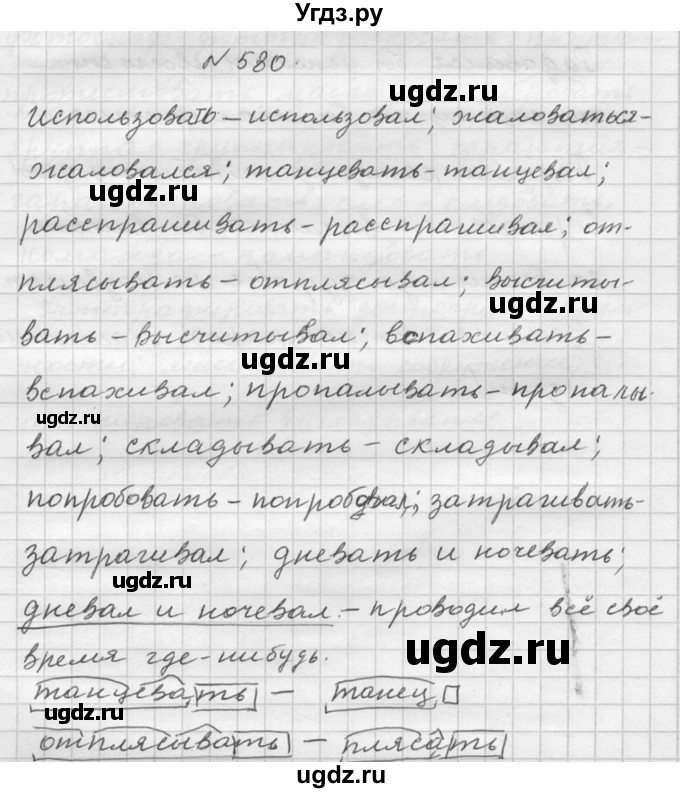 Угдз.ру
№580.
ugdz.ru
Использовать – использовал; жаловаться –
жаловался; танцевать – танцевал;
ugdz.ru
расспрашивать – расспрашивал; от-
плясывать – отплясывал; высчиты-
ugdz.ru
вать – высчитывал; вспахивать –
ugdz.ru
вспахивал; пропалывать – пропалы-
ugdz.ru
вал; складывать – складывал;
попробовать – попробовал; затрагивать –
затрагивал; дневать и ночевать;
ugdz.ru
дневал и ночевал. – проводил всё своё
время где-нибудь.
ugdz.ru
танцевать – танец
ugdz.ru
отплясывать – плясать
ugdz.ru